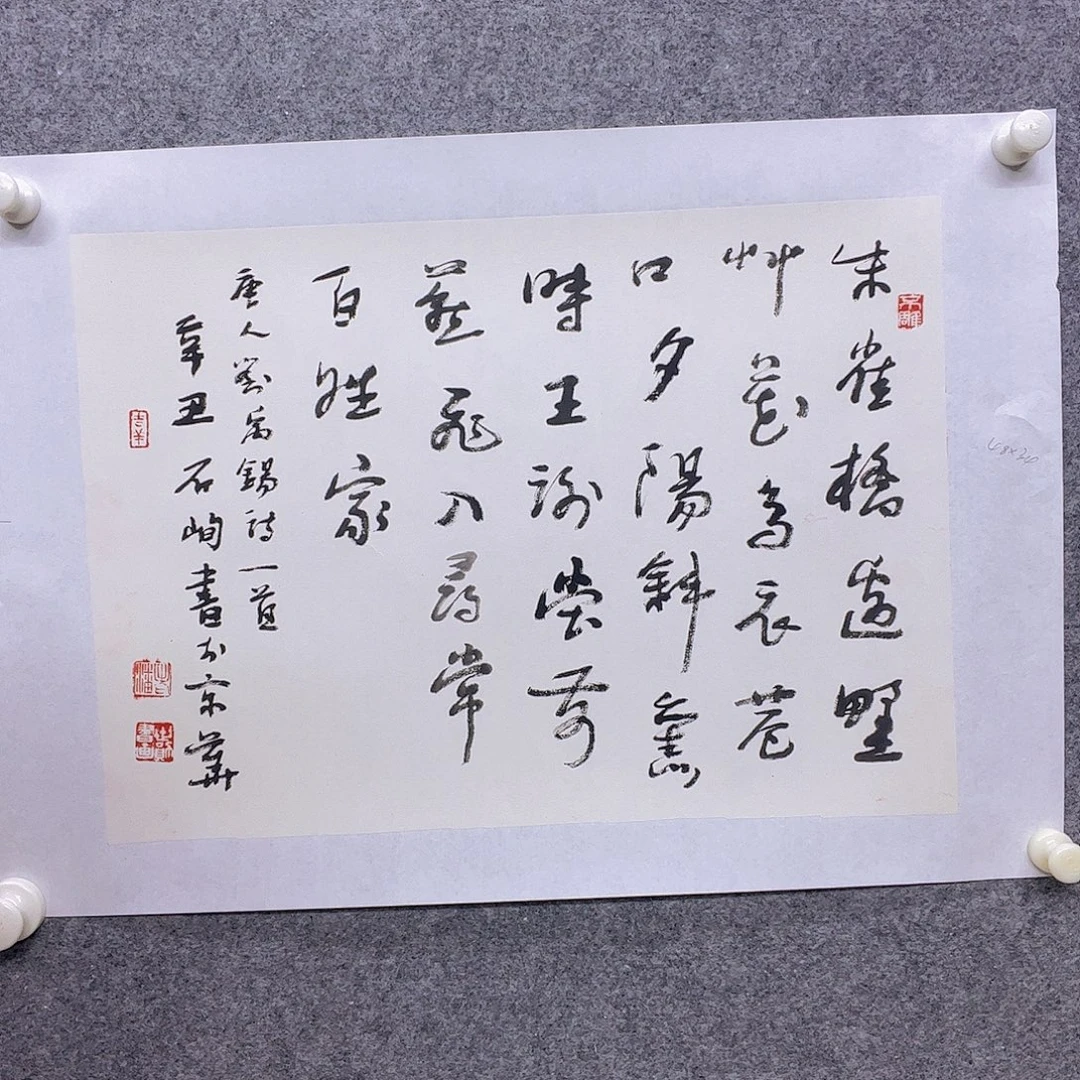 朱雀橋邊野
艸花烏衣巷
口夕陽斜舊
時王謝堂前
燕飛入尋常
百姓家
唐人劉禹錫詩一首
辛丑石峋書於京華
48×34